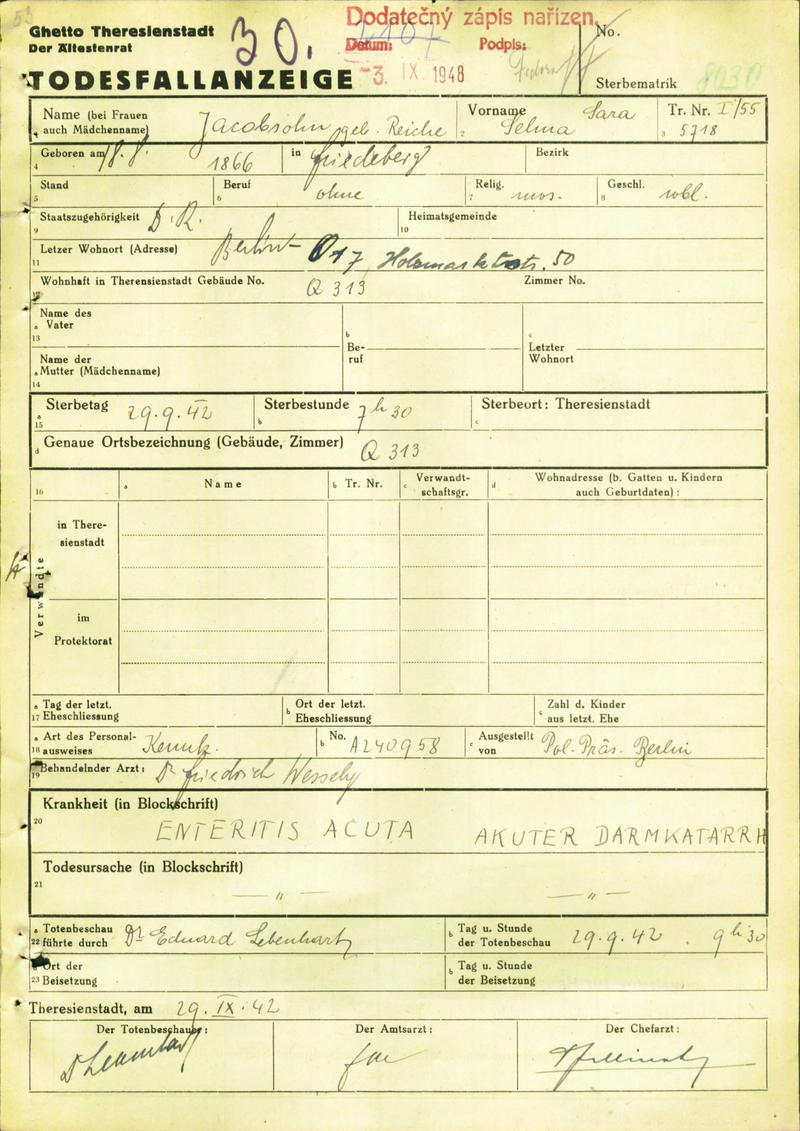 Dodatečný zápis nařízen.
Ghetto Theresienstadt
Der Ältestenrat
30.
Datum:
Podpis:
No.
-3. IX 1948
TODESFALLANZEIGE
Sterbematrik
Name (bei Frauen auch Mädchenname) Jacobsohn geb. Reiche
Vorname Selma Sara
2
Tr. Nr. I/55
3 5718
4 Geboren am 18.8. 1866 in Friedeberg Bezirk
Stand
5
Beruf
6 ohne
Relig.
7 mos.
Geschl.
8 wbl.
Staatszugehörigkeit D.R.
9
Heimatsgemeinde
10
Letzer Wohnort (Adresse) Berlin- O17, Holzmarktstr. 50
11
Wohnhaft in Theresienstadt Gebäude No. Q 313 Zimmer No.
12
Name des
a Vater
13
b
Be-
ruf
c
Letzter
Wohnort
Name der
a Mutter (Mädchenname)
14
a Sterbetag 29.9.42
15
b Sterbestunde 7h30
c Sterbeort: Theresienstadt
d Genaue Ortsbezeichnung (Gebäude, Zimmer) Q 313
16
a Name
b Tr. Nr.
c Verwandt-
schaftsgr.
d Wohnadresse (b. Gatten u. Kindern
auch Geburtdaten):
Verwandte
in There-
sienstadt
im
Protektorat
a Tag der letzt.
17 Eheschliessung
b Ort der letzt.
Eheschliessung
c Zahl d. Kinder
aus letzt. Ehe
a Art des Personal-
18 ausweises Kennk.
b No. A240958
c Ausgestellt
von Pol. Präs. Berlin
19 Behandelnder Arzt: Dr Friedrich Wessely
Krankheit (in Blockschrift)
20
ENTERITIS ACUTA AKUTER DARMKATARRH
Todesursache (in Blockschrift)
21
— " — — " —
a Totenbeschau
22 führte durch Dr Eduard
b Tag u. Stunde
der Totenbeschau 29.9.42. 9h30
a Ort der
23 Beisetzung
b Tag u. Stunde
der Beisetzung
Theresienstadt, am 29. IX. 42
Der Totenbeschauer:
Der Amtsarzt:
Der Chefarzt: